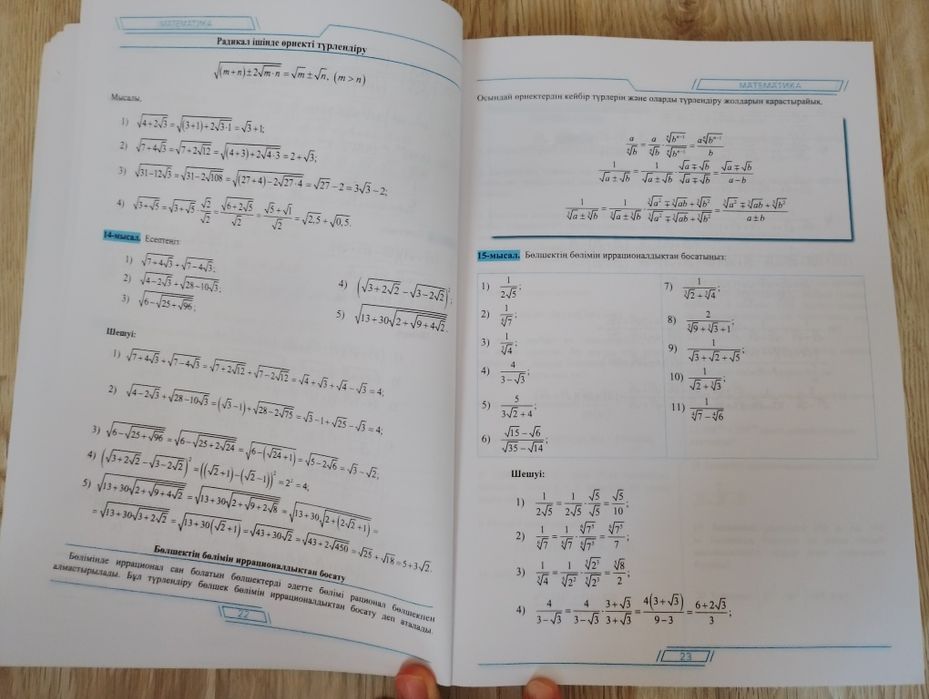 МАТЕМАТИКА
Радикал ішінде өрнекті түрлендіру
√((m+n)±2√(m·n)) = √m ± √n, (m > n)
Мысалы,
1) √(4+2√3) = √((3+1)+2√(3·1)) = √3+1;
2) √(7+4√3) = √(7+2√12) = √((4+3)+2√(4·3)) = 2+√3;
3) √(31−12√3) = √(31−2√108) = √((27+4)−2√(27·4)) = √27−2 = 3√3−2;
4) √(3+√5) = √(3+√5)·√2/√2 = √(6+2√5)/√2 = (√5+√1)/√2 = √2,5+√0,5.
14-мысал. Есептеңіз:
1) √(7+4√3)+√(7−4√3);
2) √(4−2√3)+√(28−10√3);
3) √(6−√(25+√96));
4) (√(3+2√2)−√(3−2√2))²;
5) √(13+30√(2+√(9+4√2))).
Шешуі:
1) √(7+4√3)+√(7−4√3) = √(7+2√12)+√(7−2√12) = √4+√3+√4−√3 = 4;
2) √(4−2√3)+√(28−10√3) = (√3−1)+√(28−2√75) = √3−1+√25−√3 = 4;
3) √(6−√(25+√96)) = √(6−√(25+2√24)) = √(6−(√24+1)) = √(5−2√6) = √3−√2,
4) (√(3+2√2)−√(3−2√2))² = ((√2+1)−(√2−1))² = 2² = 4;
5) √(13+30√(2+√(9+4√2))) = √(13+30√(2+√(9+2√8))) = √(13+30√(2+(2√2+1))) =
= √(13+30√(3+2√2)) = √(13+30(√2+1)) = √(43+30√2) = √(43+2√450) = √25+√18 = 5+3√2.
Бөлшектің бөлімін иррационалдықтан босату
Бөлімінде иррационал сан болатын бөлшектерді әдетте бөлімі рационал бөлшекпен
алмастырылады. Бұл түрлендіру бөлшек бөлімін иррационалдықтан босату деп аталады.
22
МАТЕМАТИКА
Осындай өрнектердің кейбір түрлерін және оларды түрлендіру жолдарын қарастырайық.
a/ⁿ√b = a/ⁿ√b · ⁿ√bⁿ⁻¹/ⁿ√bⁿ⁻¹ = aⁿ√bⁿ⁻¹/b
1/(√a±√b) = 1/(√a±√b) · (√a∓√b)/(√a∓√b) = (√a∓√b)/(a−b)
1/(³√a±³√b) = 1/(³√a±³√b) · (³√a²∓³√ab+³√b²)/(³√a²∓³√ab+³√b²) = (³√a²∓³√ab+³√b²)/(a±b)
15-мысал. Бөлшектің бөлімін иррационалдықтан босатыңыз:
1) 1/(2√5);
2) 1/⁴√7;
3) 1/⁵√4;
4) 4/(3−√3);
5) 5/(3√2+4);
6) (√15−√6)/(√35−√14);
7) 1/(³√2+³√4);
8) 2/(³√9+³√3+1);
9) 1/(√3+√2+√5);
10) 1/(√2+³√3);
11) 1/(⁴√7−⁴√6)
Шешуі:
1) 1/(2√5) = 1/(2√5) · √5/√5 = √5/10;
2) 1/⁴√7 = 1/⁴√7 · ⁴√7³/⁴√7³ = ⁴√7³/7;
3) 1/⁵√4 = 1/⁵√2² · ⁵√2³/⁵√2³ = ⁵√8/2;
4) 4/(3−√3) = 4/(3−√3) · (3+√3)/(3+√3) = 4(3+√3)/(9−3) = (6+2√3)/3;
23